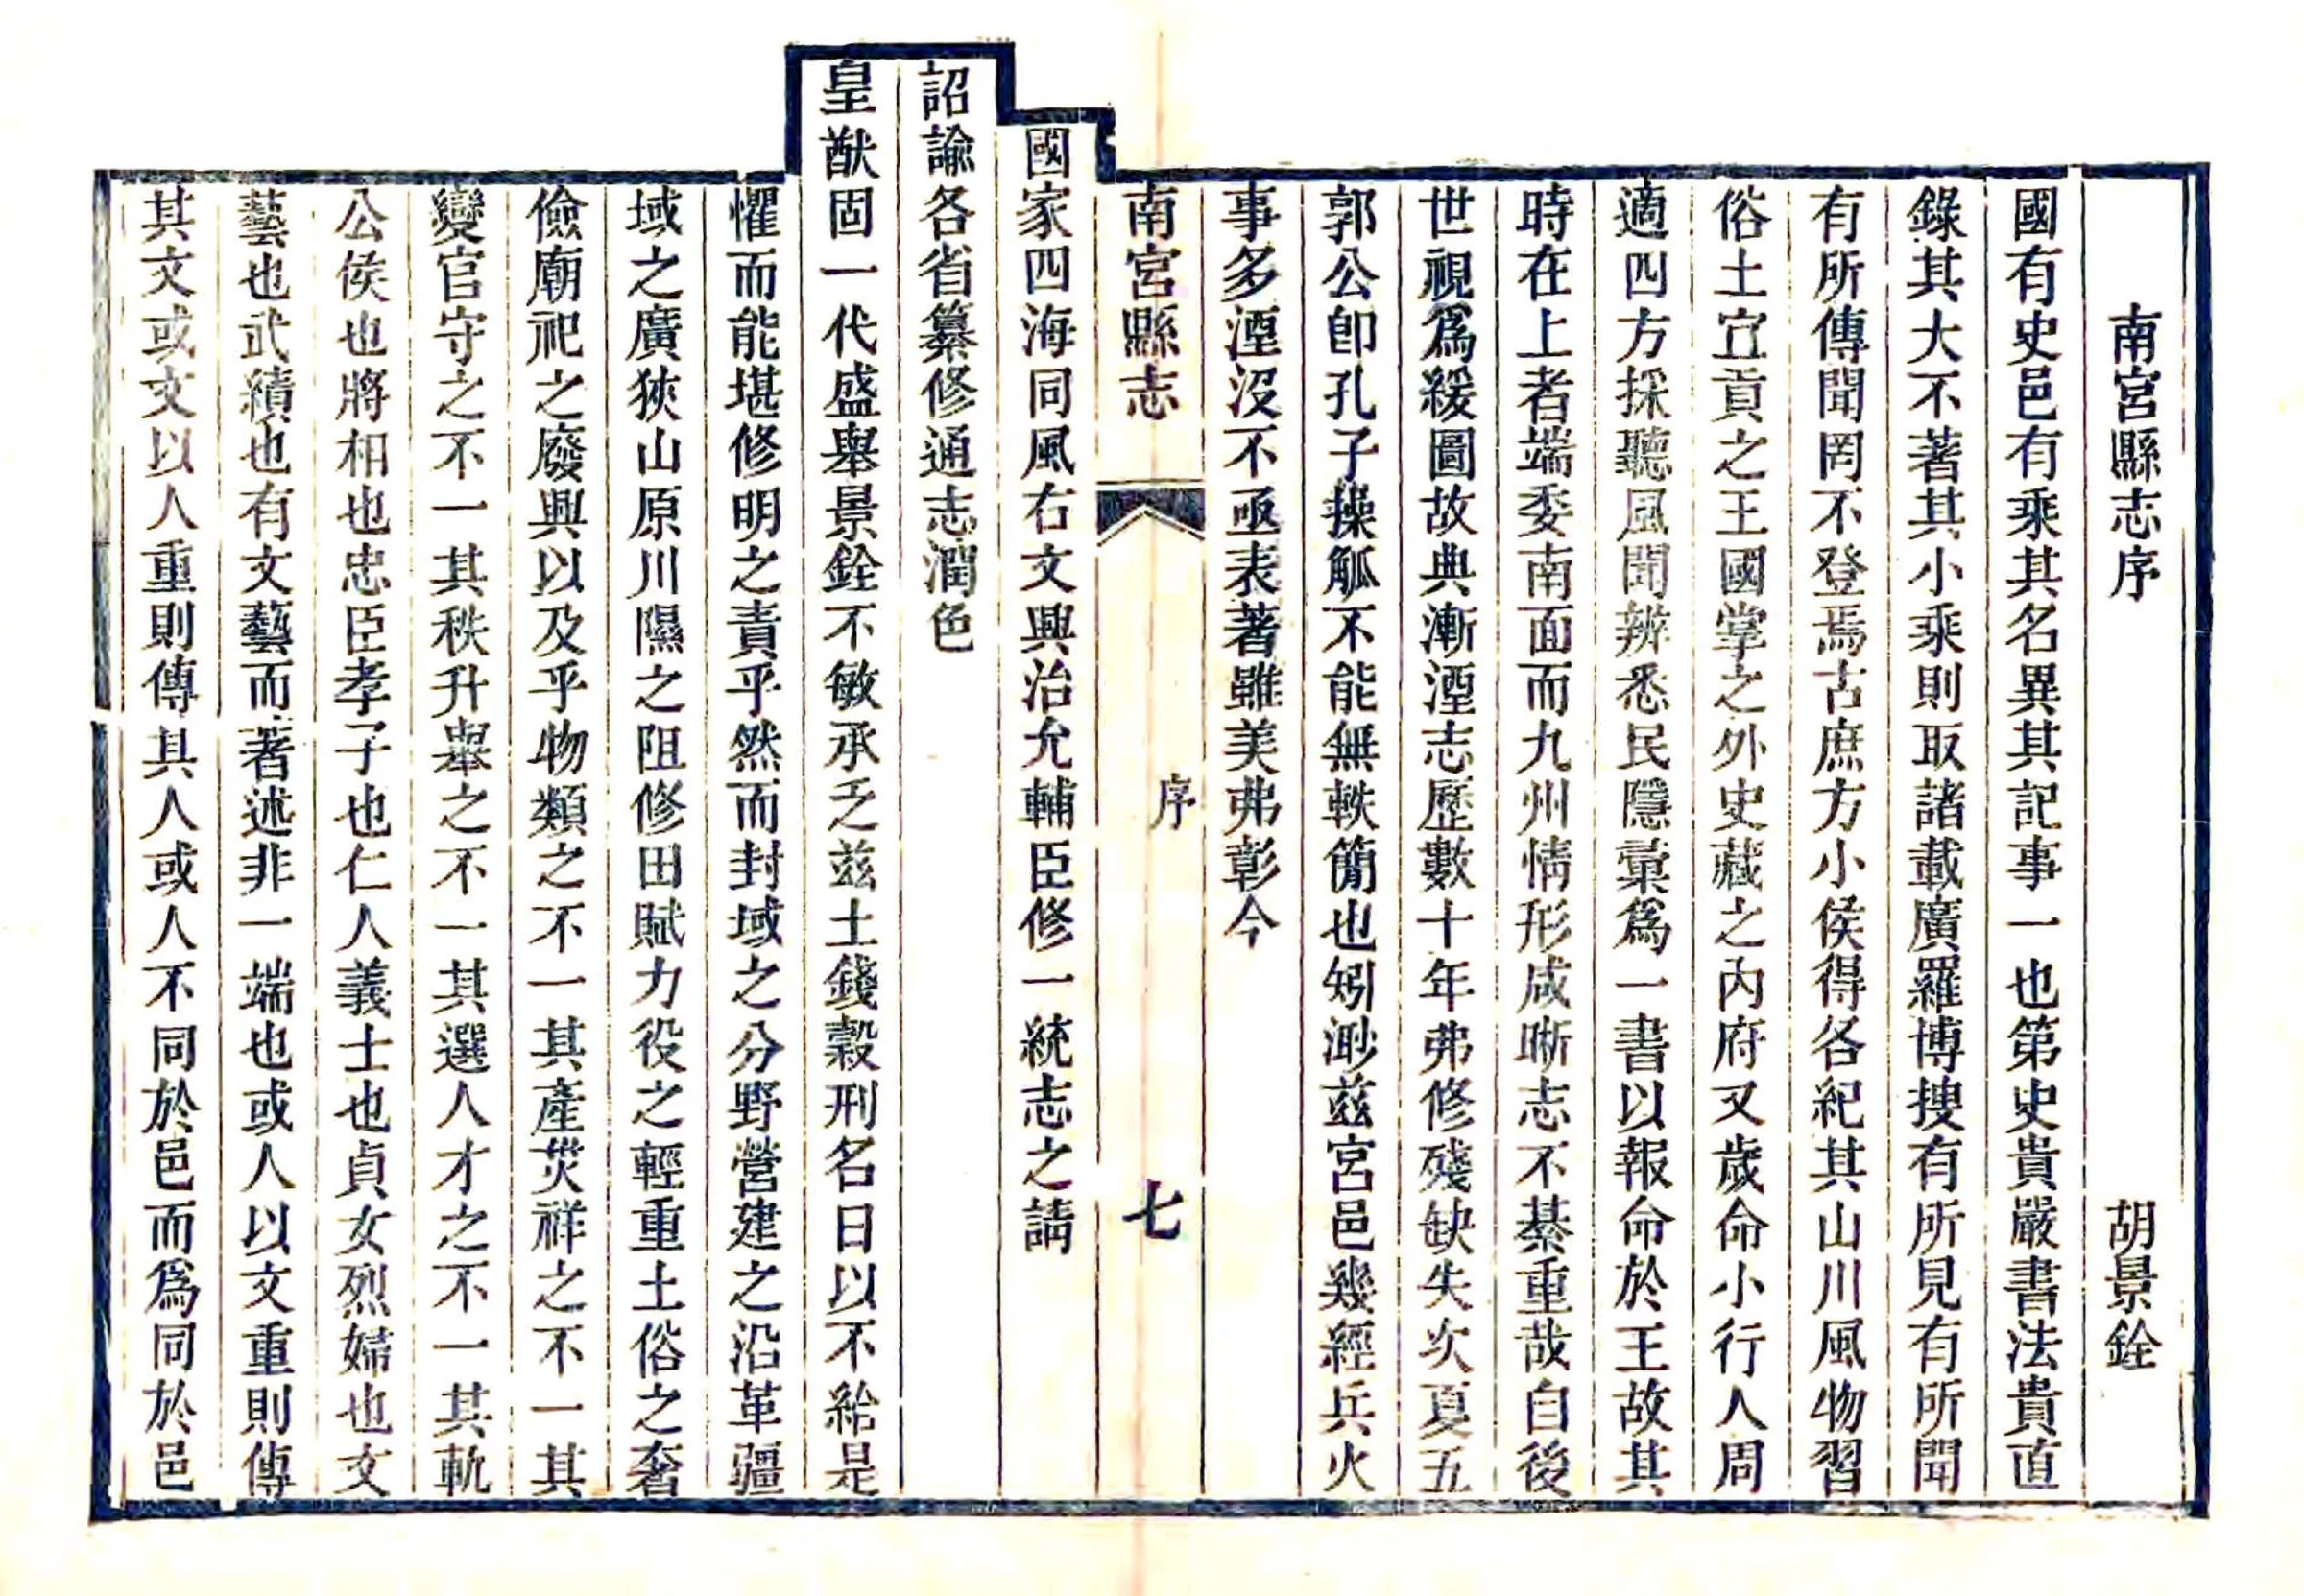 南宮縣志序 胡景銓
國有史邑有乘其名異其記事一也第史貴嚴書法貴直
錄其大不著其小乘則取諸載廣羅博搜有所見有所聞
有所傳聞罔不登焉古庶方小侯得各紀其山川風物習
俗土宜貢之王國掌之外史藏之內府又歲命小行人周
適四方採聽風聞辨悉民隱彙爲一書以報命於王故其
時在上者端委南面而九州情形咸晰志不綦重哉自後
世視爲緩圖故典漸湮志歷數十年弗修殘缺失次夏五
郭公卽孔子操觚不能無軼簡也矧渺茲宮邑幾經兵火
事多湮沒不亟表著雖美弗彰今
南宮縣志 序 七
國家四海同風右文興治允輔臣修一統志之請
詔諭各省纂修通志潤色
皇猷固一代盛舉景銓不敏承乏茲土錢穀刑名日以不給是
懼而能堪修明之責乎然而封域之分野營建之沿革疆
域之廣狹山原川隰之阻修田賦力役之輕重土俗之奢
儉廟祀之廢興以及乎物類之不一其產災祥之不一其
變官守之不一其秩升舉之不一其選人才之不一其軌
公侯也將相也忠臣孝子也仁人義士也貞女烈婦也文
藝也武績也有文藝而著述非一端也或人以文重則傳
其文或文以人重則傳其人或人不同於邑而爲同於邑